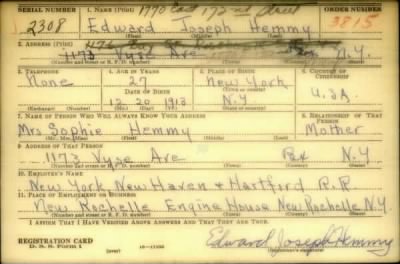 SERIAL NUMBER
1. NAME (Print) 1770 East 172nd Street
ORDER NUMBER
2308 Edward Joseph Hemmy 3815
2. ADDRESS (Print)
1173 Vyse Ave Bx N.Y.
(Number and street or R. F. D. number)
3. TELEPHONE
4. AGE IN YEARS
5. PLACE OF BIRTH
6. COUNTRY OF
None 27 New York
DATE OF BIRTH
U.S.A
12 20 1913 N.Y
(Exchange) (Number) (Mo.) (Day) (Yr.)
7. NAME OF PERSON WHO WILL ALWAYS KNOW YOUR ADDRESS
8. RELATIONSHIP OF THAT PERSON
Mrs Sophie Hemmy Mother
(Mr., Mrs., Miss) (First) (Middle) (Last)
9. ADDRESS OF THAT PERSON
1173 Vyse Ave Bx N.Y
(Number and street or R. F. D. number) (Town) (County) (State)
10. EMPLOYER'S NAME
New York New Haven & Hartford R.R
11. PLACE OF EMPLOYMENT OR BUSINESS
New Rochelle Engine House New Rochelle N.Y.
(Number and street or R. F. D. number) (Town) (County) (State)
I AFFIRM THAT I HAVE VERIFIED ABOVE ANSWERS AND THAT THEY ARE TRUE.
REGISTRATION CARD
D. S. S. Form 1
Edward Joseph Hemmy
(Registrant's signature)